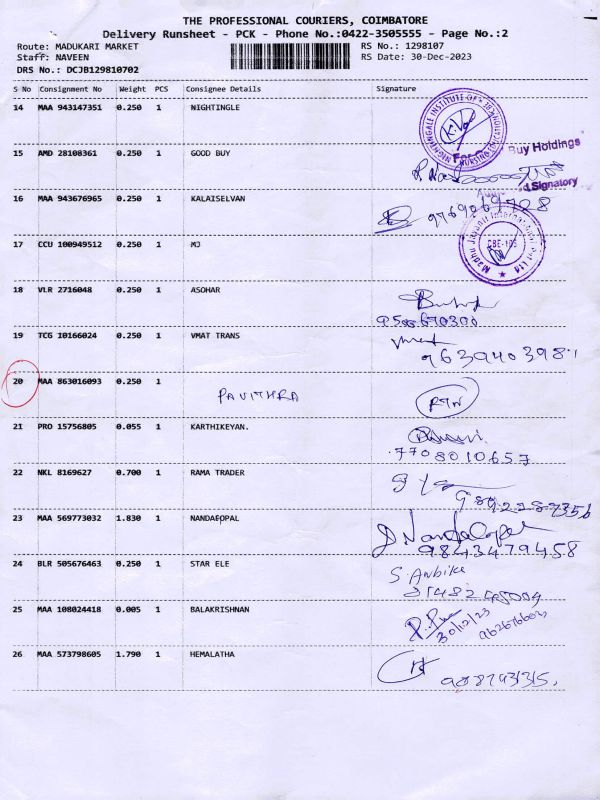 THE PROFESSIONAL COURIERS, COIMBATORE
Delivery Runsheet - PCK - Phone No.:0422-3505555 - Page No.:2
Route: MADUKARI MARKET RS No.: 1298107
Staff: NAVEEN RS Date: 30-Dec-2023
DRS No.: DCJB129810702
S No Consignment No Weight PCS Consignee Details Signature
14 MAA 943147351 0.250 1 NIGHTINGLE
15 AMD 28108361 0.250 1 GOOD BUY
Buy Holdings
Signatory
16 MAA 943676965 0.250 1 KALAISELVAN
9769869728
17 CCU 100949512 0.250 1 MJ
Madhu Jayanti International Pvt Ltd
18 VLR 2716048 0.250 1 ASOHAR
19 TCG 10166024 0.250 1 VMAT TRANS
9639403981
20 MAA 863016093 0.250 1 PAVITHRA
21 PRO 15756805 0.055 1 KARTHIKEYAN.
7708010657
22 NKL 8169627 0.700 1 RAMA TRADER
23 MAA 569773032 1.830 1 NANDAGOPAL
D. Nandagopal
9843479458
24 BLR 505676463 0.250 1 STAR ELE
S. Anbike
25 MAA 108024418 0.005 1 BALAKRISHNAN
30/12/23
26 MAA 573798605 1.790 1 HEMALATHA